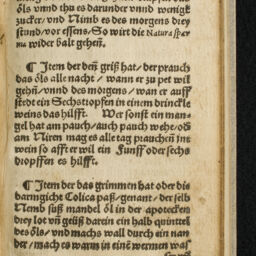 öls vnnd thu es darunder vnnd wenigk
zucker/ vnd Nimb es des morgens drey
stund/ vor essens/ So wirt die Natura sper
ma wider balt gehen.
¶ Item der den griß hat/ der prauch
das öls alle nacht/ wann er zu pet wil
gehn/ vnnd des morgens/ wan er auff
stedt ein Sechstropfen in einem drinckle
weins das hilfft. Wer sonst ein man-
gel hat am pauch/ auch pauch wehe/ oder
am Niren mag es alle tag prauchen jm̄
wein so afft er wil ein Funff oder sechs
dropffen es hilfft.
¶ Item der das grimmen hat oder die
darmgicht Colica paß/ genant/ der selb
Nemb süß mandel öl in der apotecken
drey lot vn̄ geüß darein ein halb quintet
des öls/ vnd machs wall durch ein nan
der/ mach es warm in eine wermen was